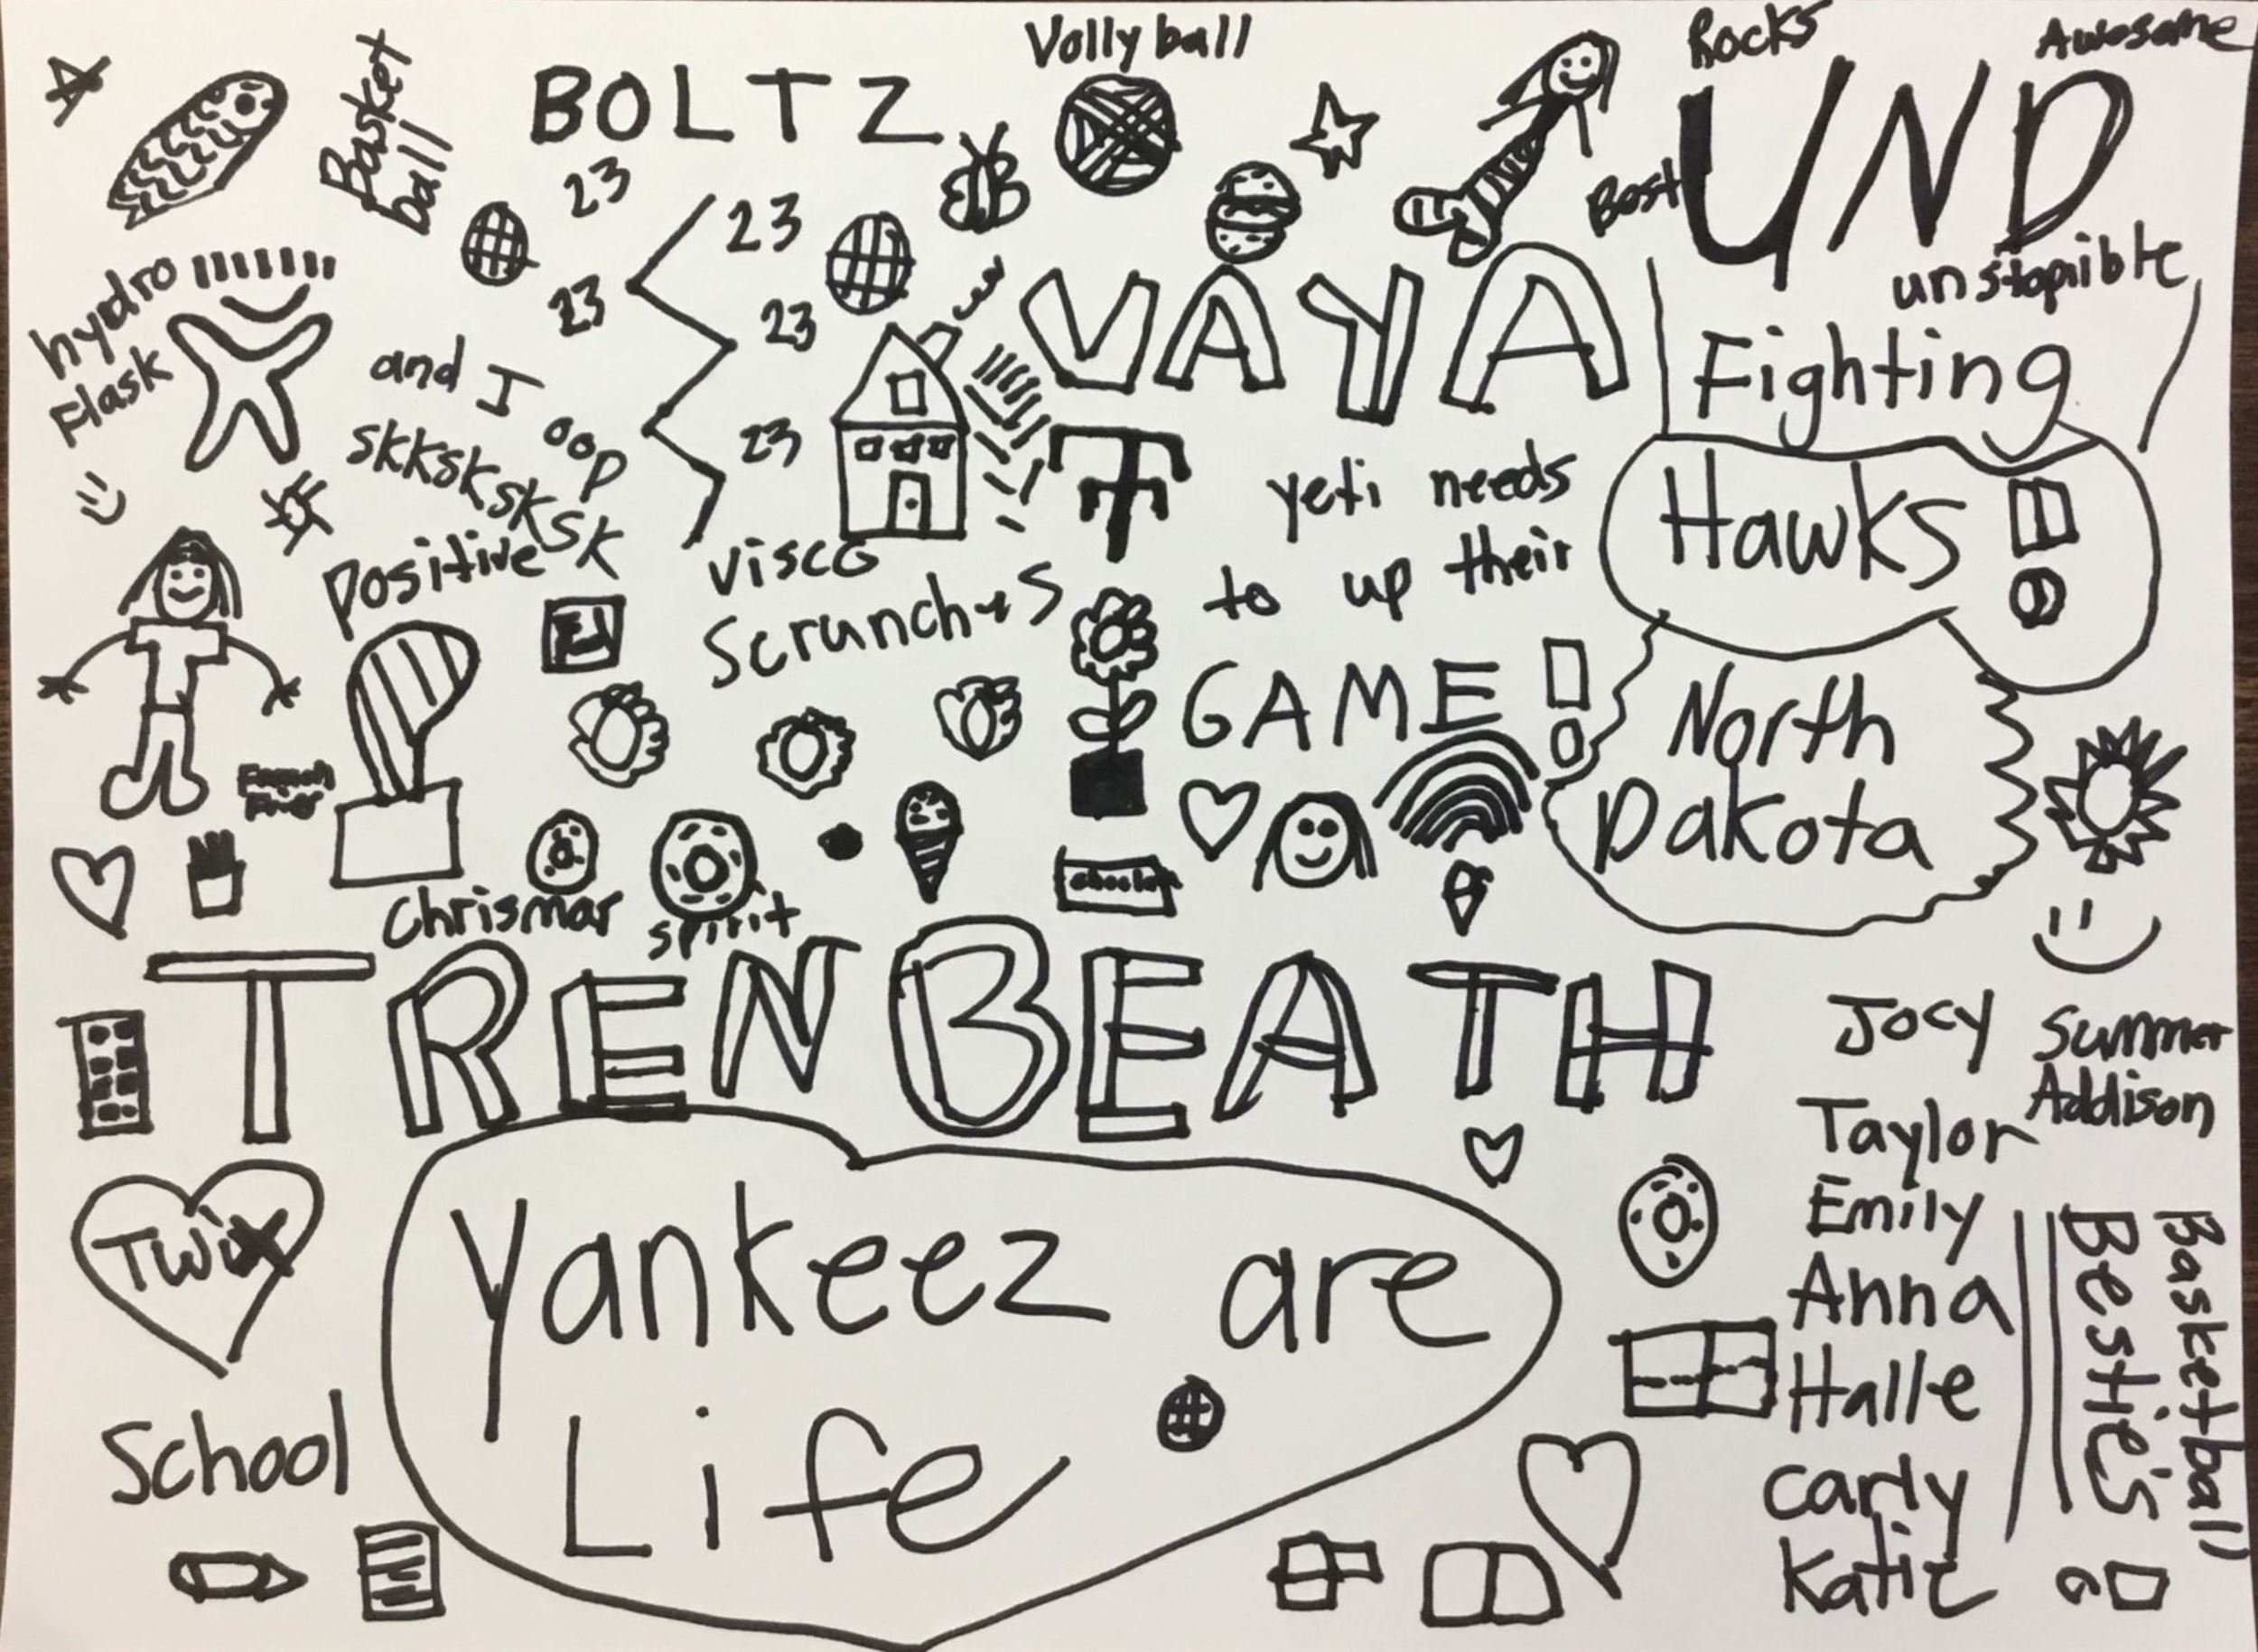 Vollyball
Rocks
Awesome
Basket
ball
BOLTZ
UND
Best
unstopiible
23
23
23
23
23
hydro
Flask
VAYA
Fighting
and I oop
skksksksksk
Hawks!
yeti needs
to up their
GAME!
positive
visco
Scrunch
North
Dakota
French
Chrismar
spirit
TRENBEATH
Jocy
Summer
Addison
Taylor
Emily
Anna
Halle
Carly
Katie
Twix
Yankeez are
Life
School
Bestie's!
Basketball